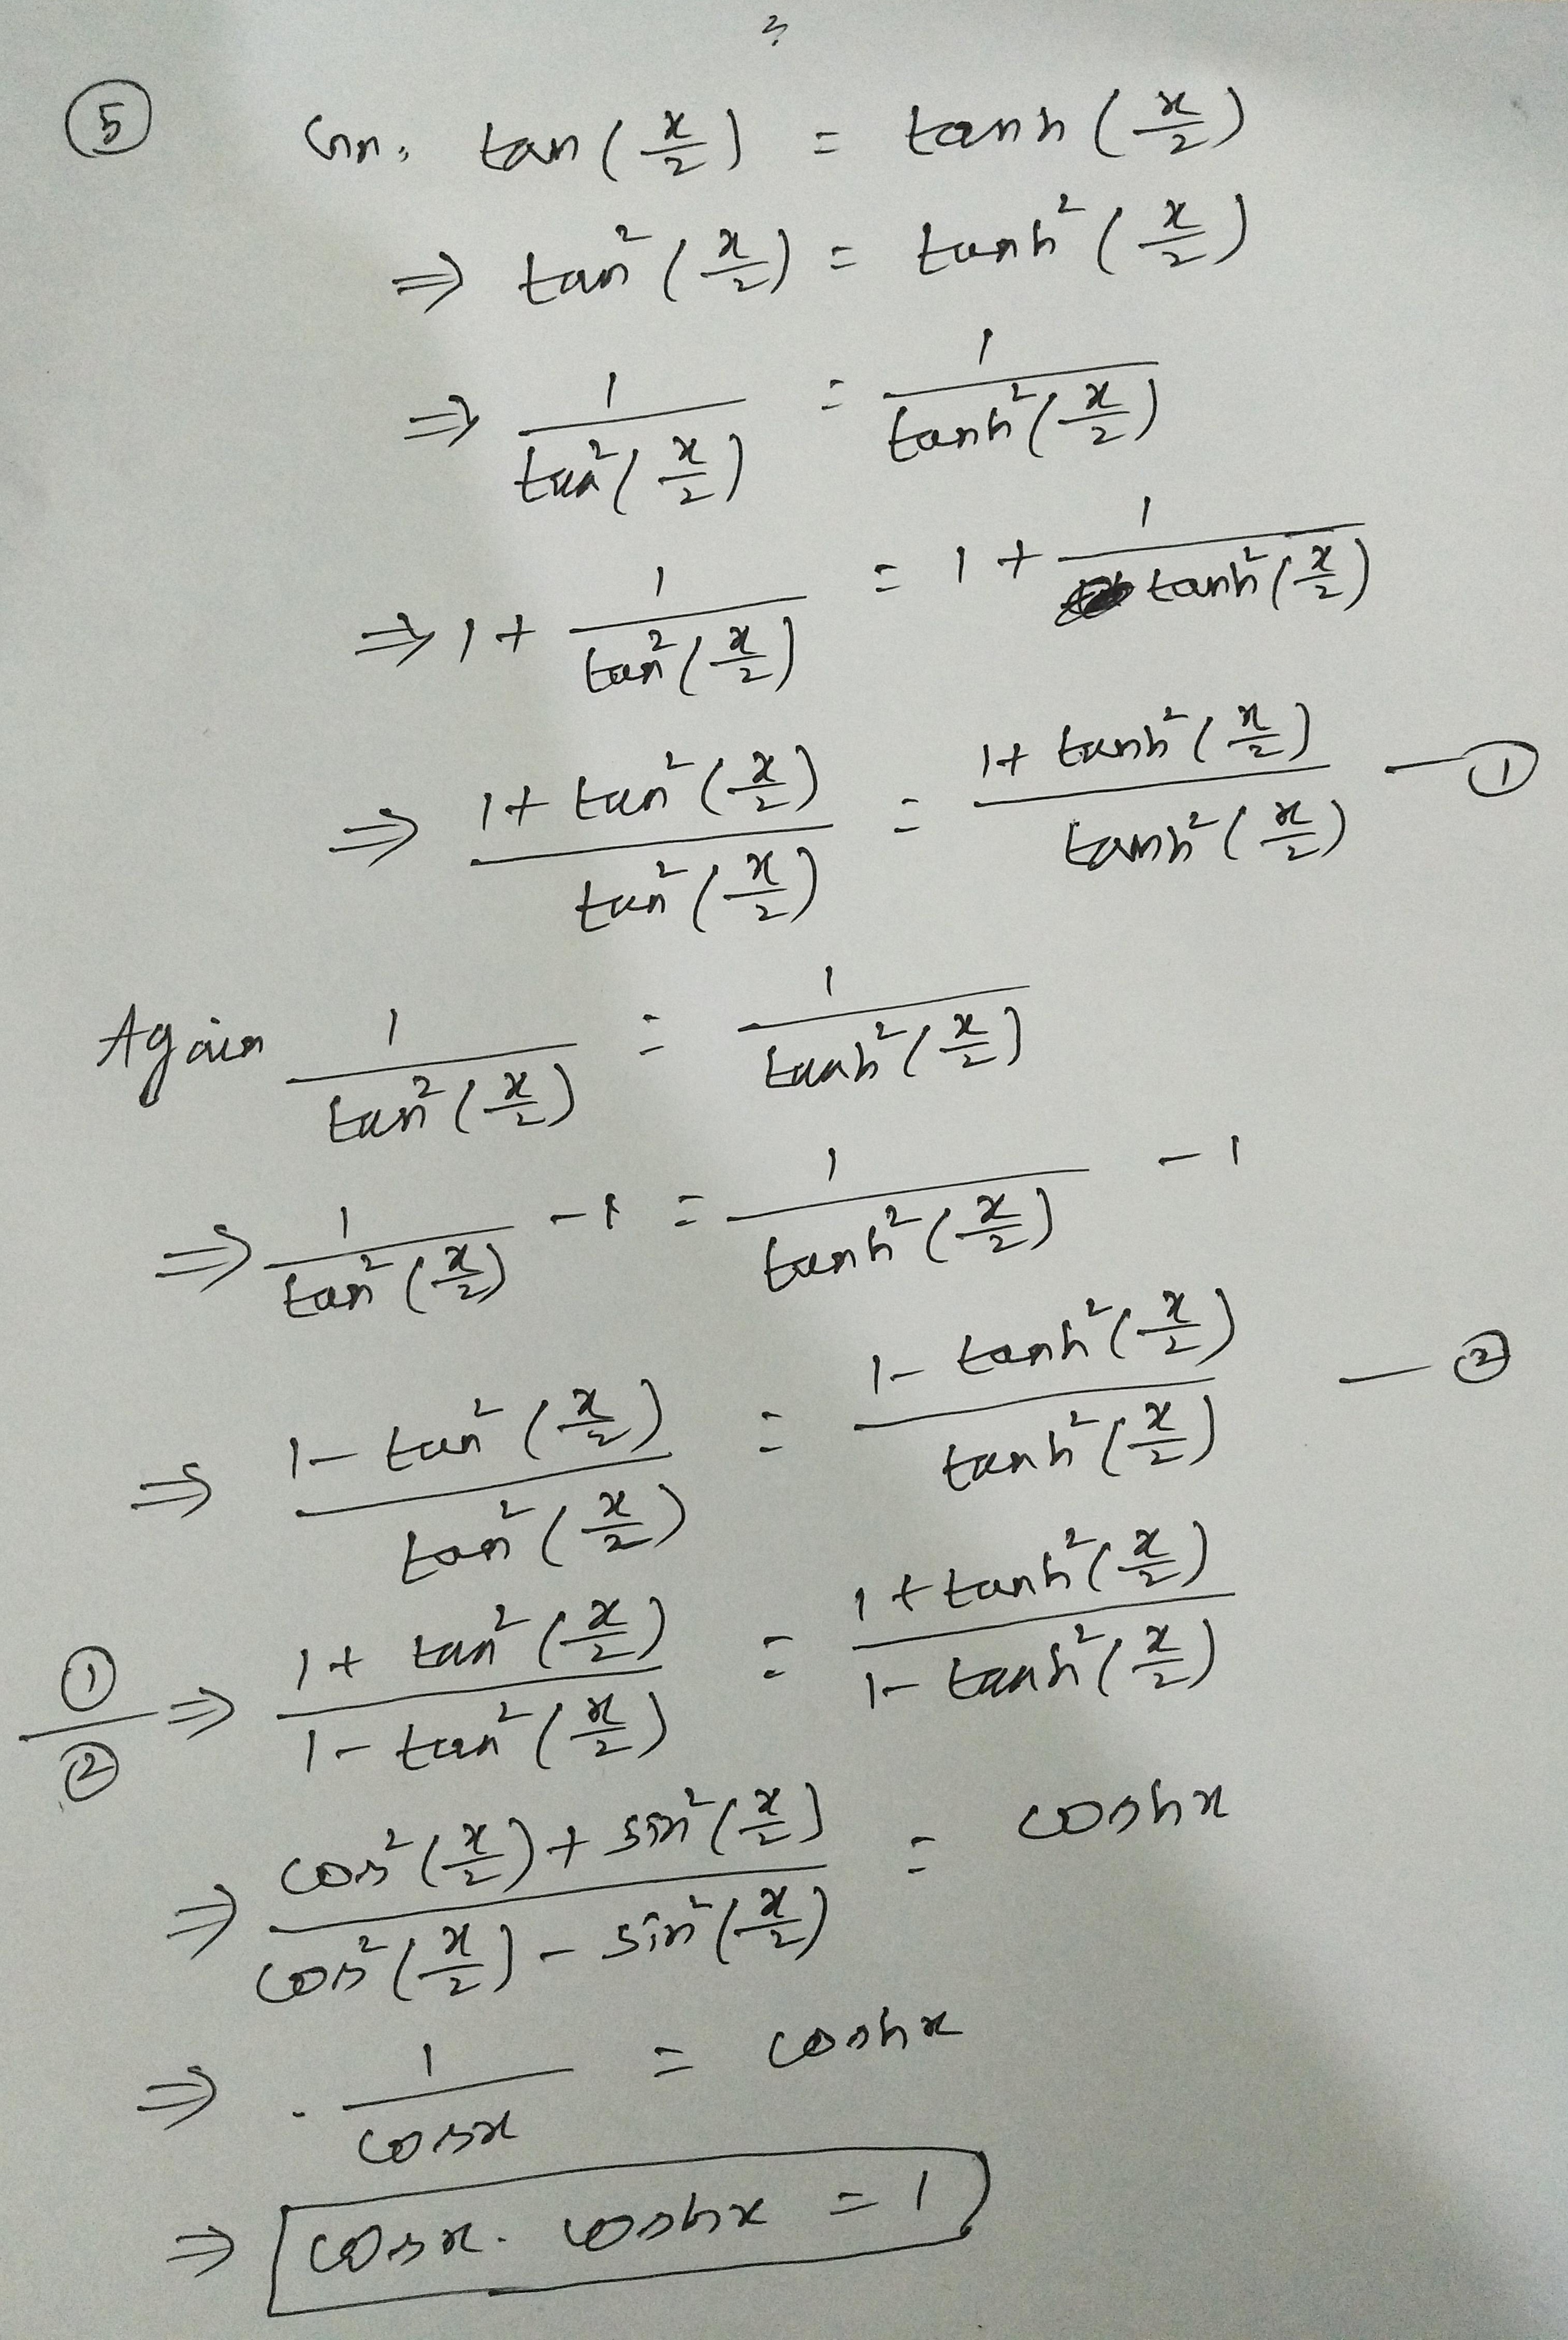 ⑤ Gn. tan(x/2) = tanh(x/2)
⇒ tan²(x/2) = tanh²(x/2)
⇒ 1/tan²(x/2) = 1/tanh²(x/2)
⇒ 1 + 1/tan²(x/2) = 1 + 1/tanh²(x/2)
⇒ (1+ tan²(x/2))/tan²(x/2) = (1+ tanh²(x/2))/tanh²(x/2) — ①
Again 1/tan²(x/2) = 1/tanh²(x/2)
⇒ 1/tan²(x/2) - 1 = 1/tanh²(x/2) - 1
⇒ (1- tan²(x/2))/tan²(x/2) = (1- tanh²(x/2))/tanh²(x/2) — ②
①/② ⇒ (1+ tan²(x/2))/(1- tan²(x/2)) = (1+ tanh²(x/2))/(1- tanh²(x/2))
⇒ (cos²(x/2) + sin²(x/2))/(cos²(x/2) - sin²(x/2)) = coshx
⇒ 1/cosx = coshx
⇒ cosx. coshx = 1